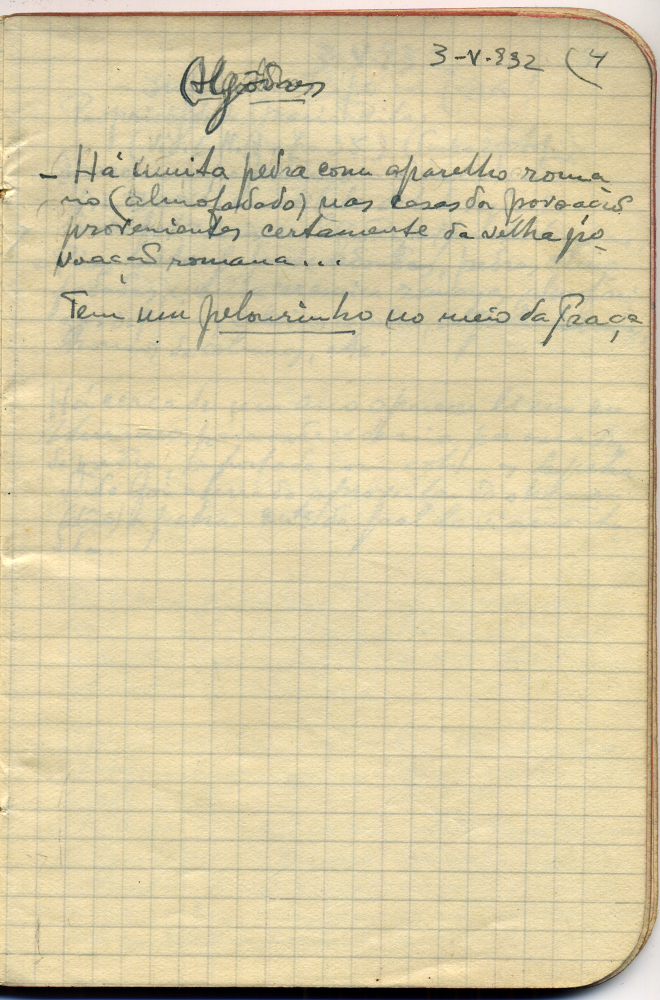 3-V-932 (4
Algodres
- Há muita pedra com aparelho roma
no (almofadado) nas casas da povoação
provenientes certamente da velha po-
voação romana...
Tem um pelourinho no meio da Praça